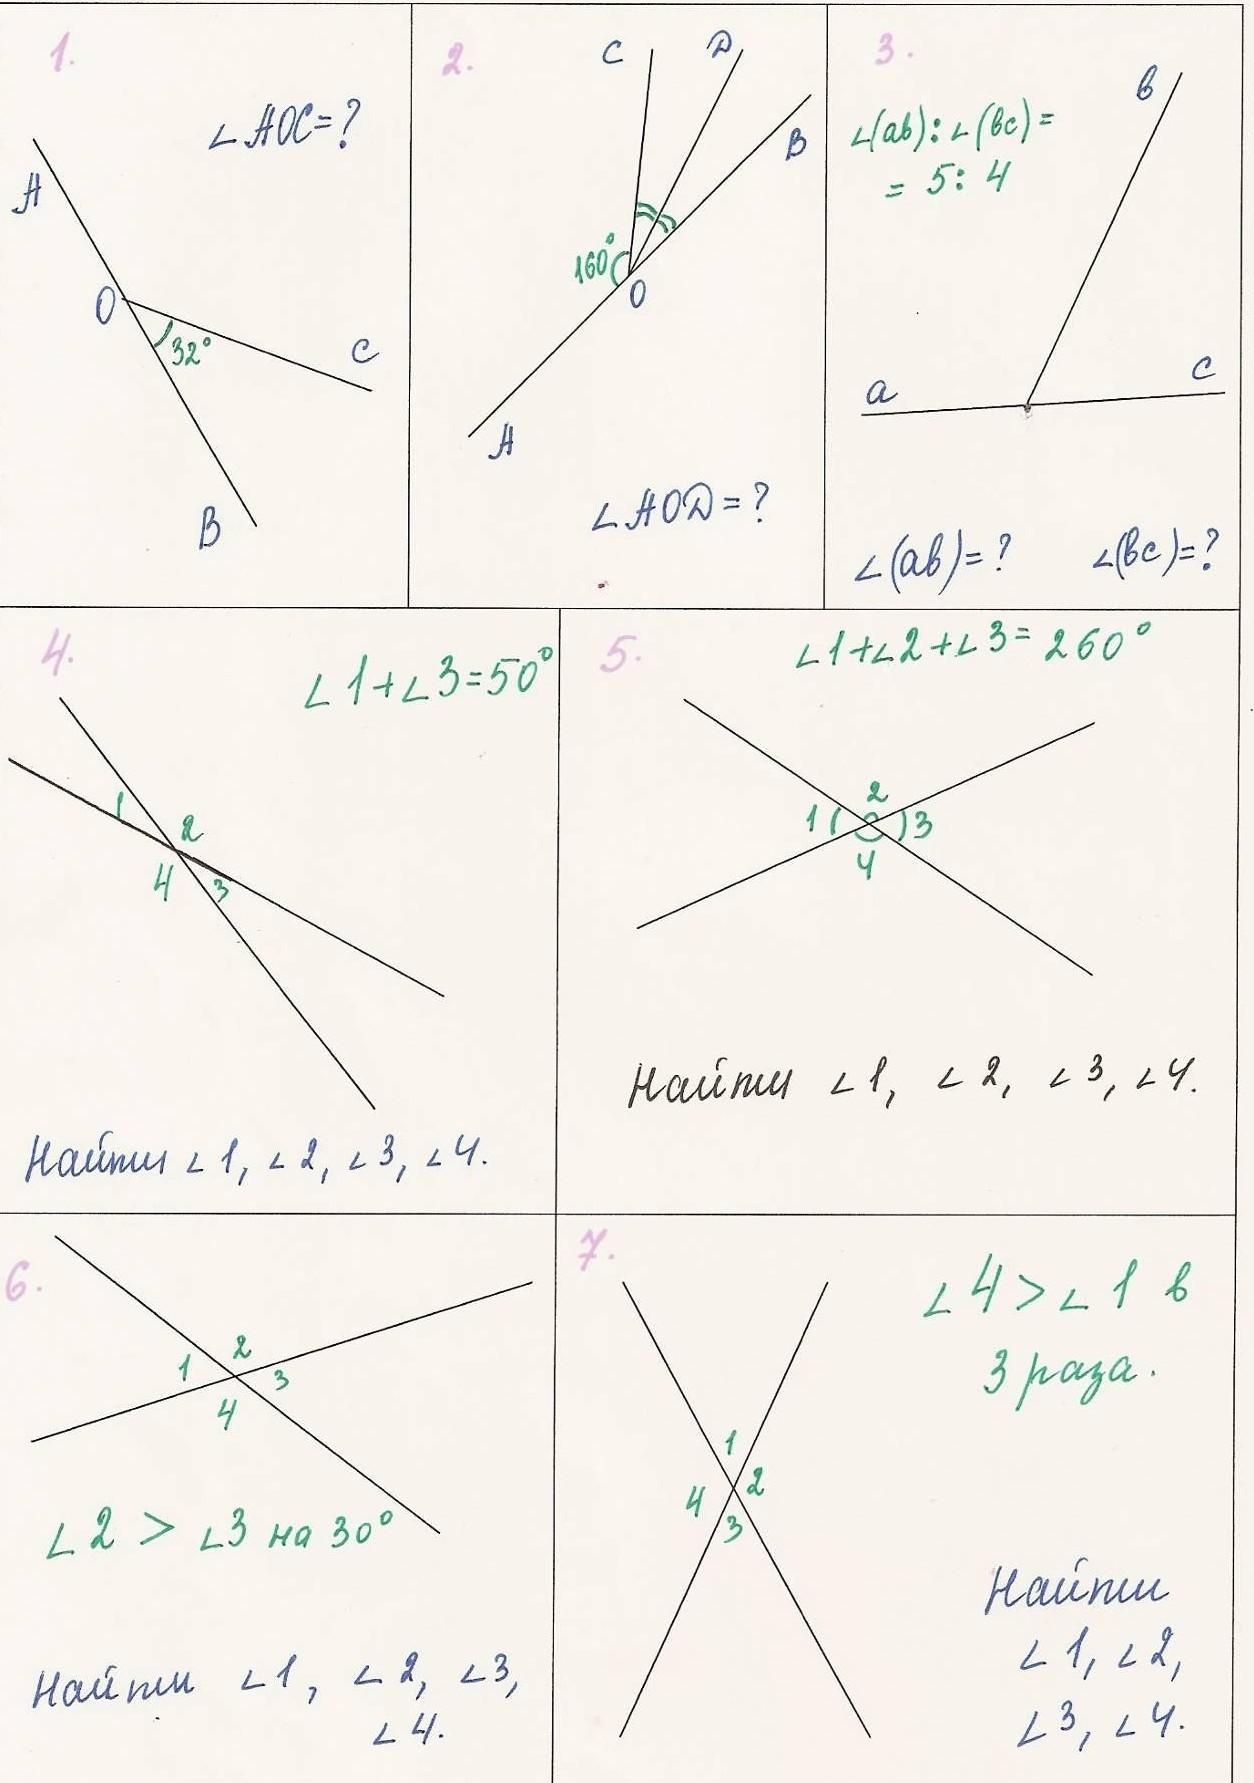 1.
∠AOC=?
A
O
32°
C
B
2.
C
D
B
160°
O
A
∠AOD=?
3.
∠(ab):∠(bc)=
= 5:4
b
a
c
∠(ab)=? ∠(bc)=?
4.
∠1+∠3=50°
1
2
4
3
Найти ∠1, ∠2, ∠3, ∠4.
5.
∠1+∠2+∠3=260°
2
1
3
4
Найти ∠1, ∠2, ∠3, ∠4.
6.
1
2
3
4
∠2 > ∠3 на 30°
Найти ∠1, ∠2, ∠3,
∠4.
7.
∠4>∠1 в
3 раза.
1
4
2
3
Найти
∠1, ∠2,
∠3, ∠4.